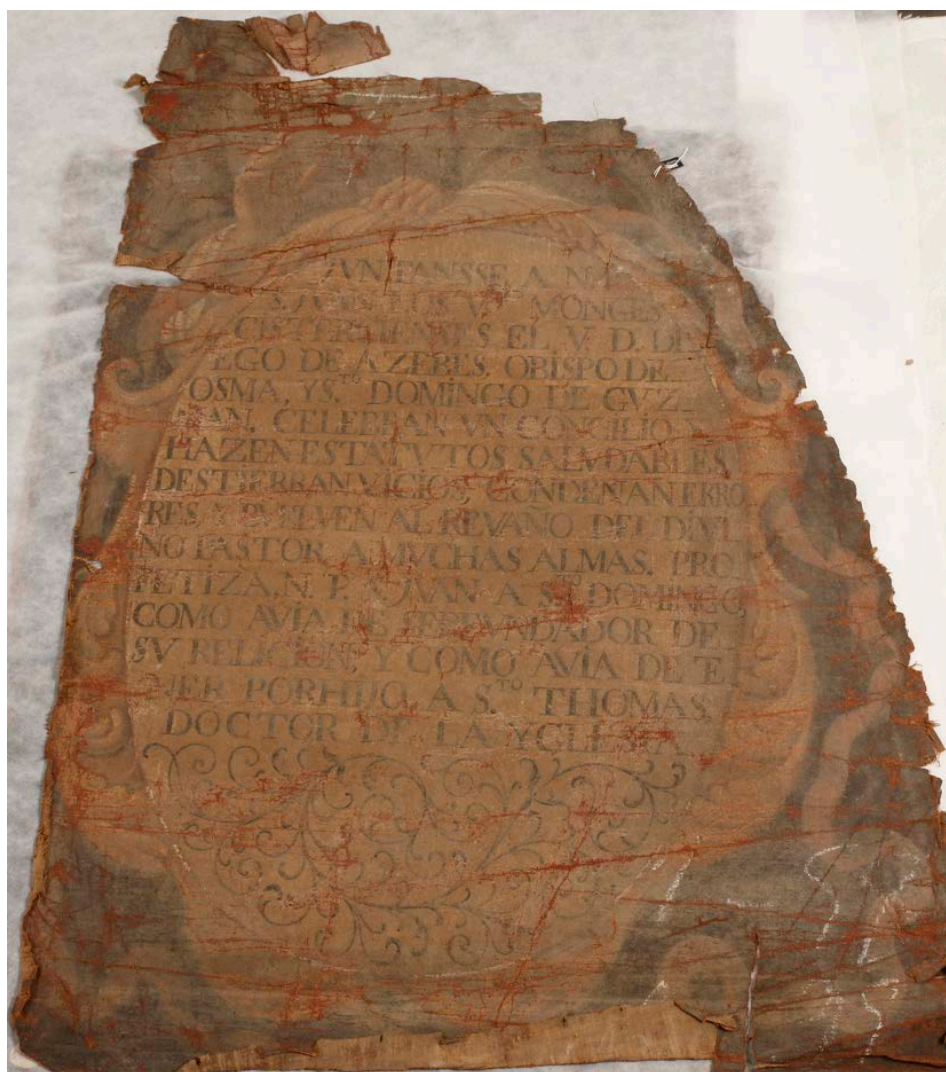 IVNTANSSE A N. P.
S. JVAN LOS V. MONGES
CISTERCIENSES EL V. D. DI
EGO DE AZEBES. OBISPO DE
OSMA, Y S.TO DOMINGO DE GVZ-
MAN. CELEBRAN VN CONCILIO Y
HAZEN ESTATVTOS SALVDABLES,
DESTIERRAN VICIOS, CONDENAN ERRO
RES, Y BVELVEN AL REVAÑO DEL DIVI
NO PASTOR A MVCHAS ALMAS. PRO
FETIZA, N. P. S. JVAN A S.TO DOMINGO,
COMO AVÍA DE SER FVNDADOR DE
SV RELIGION, Y COMO AVÍA DE TE
NER POR HIJO A S.TO THOMAS,
DOCTOR DE LA YGLESIA.